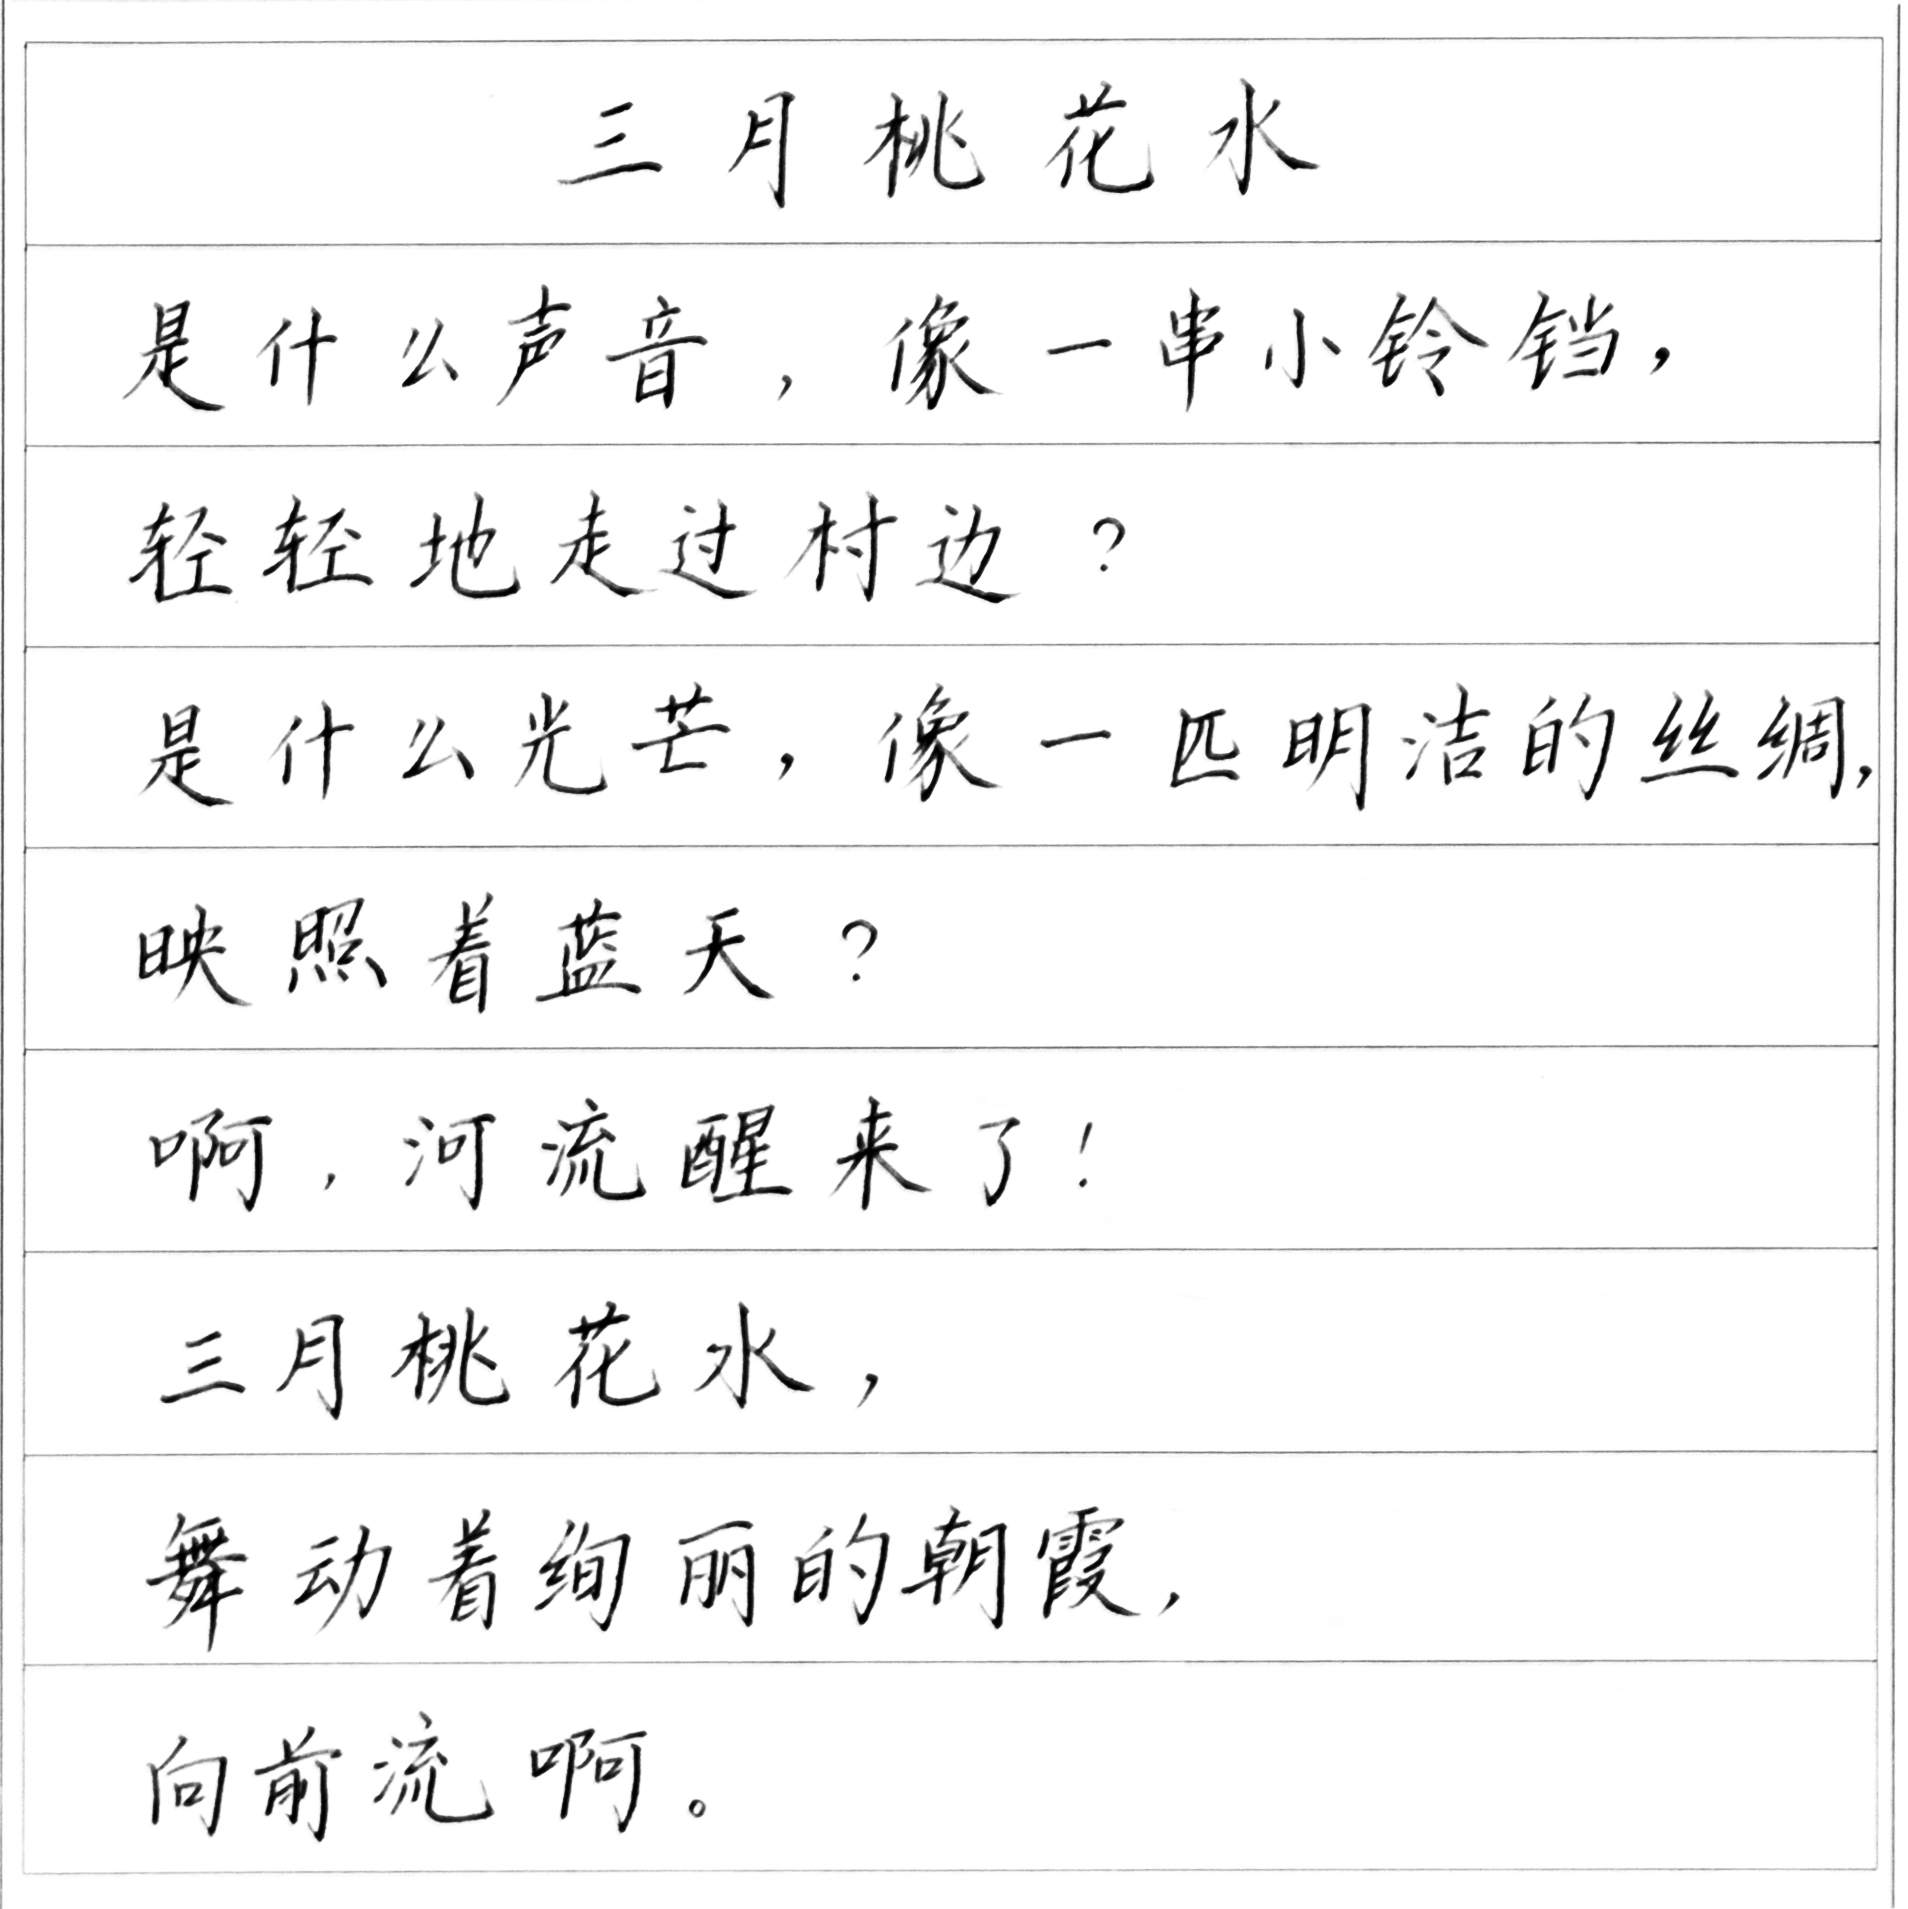 三月桃花水
是什么声音，像一串小铃铛，
轻轻地走过村边？
是什么光芒，像一匹明洁的丝绸，
映照着蓝天？
啊，河流醒来了！
三月桃花水，
舞动着绚丽的朝霞，
向前流啊。